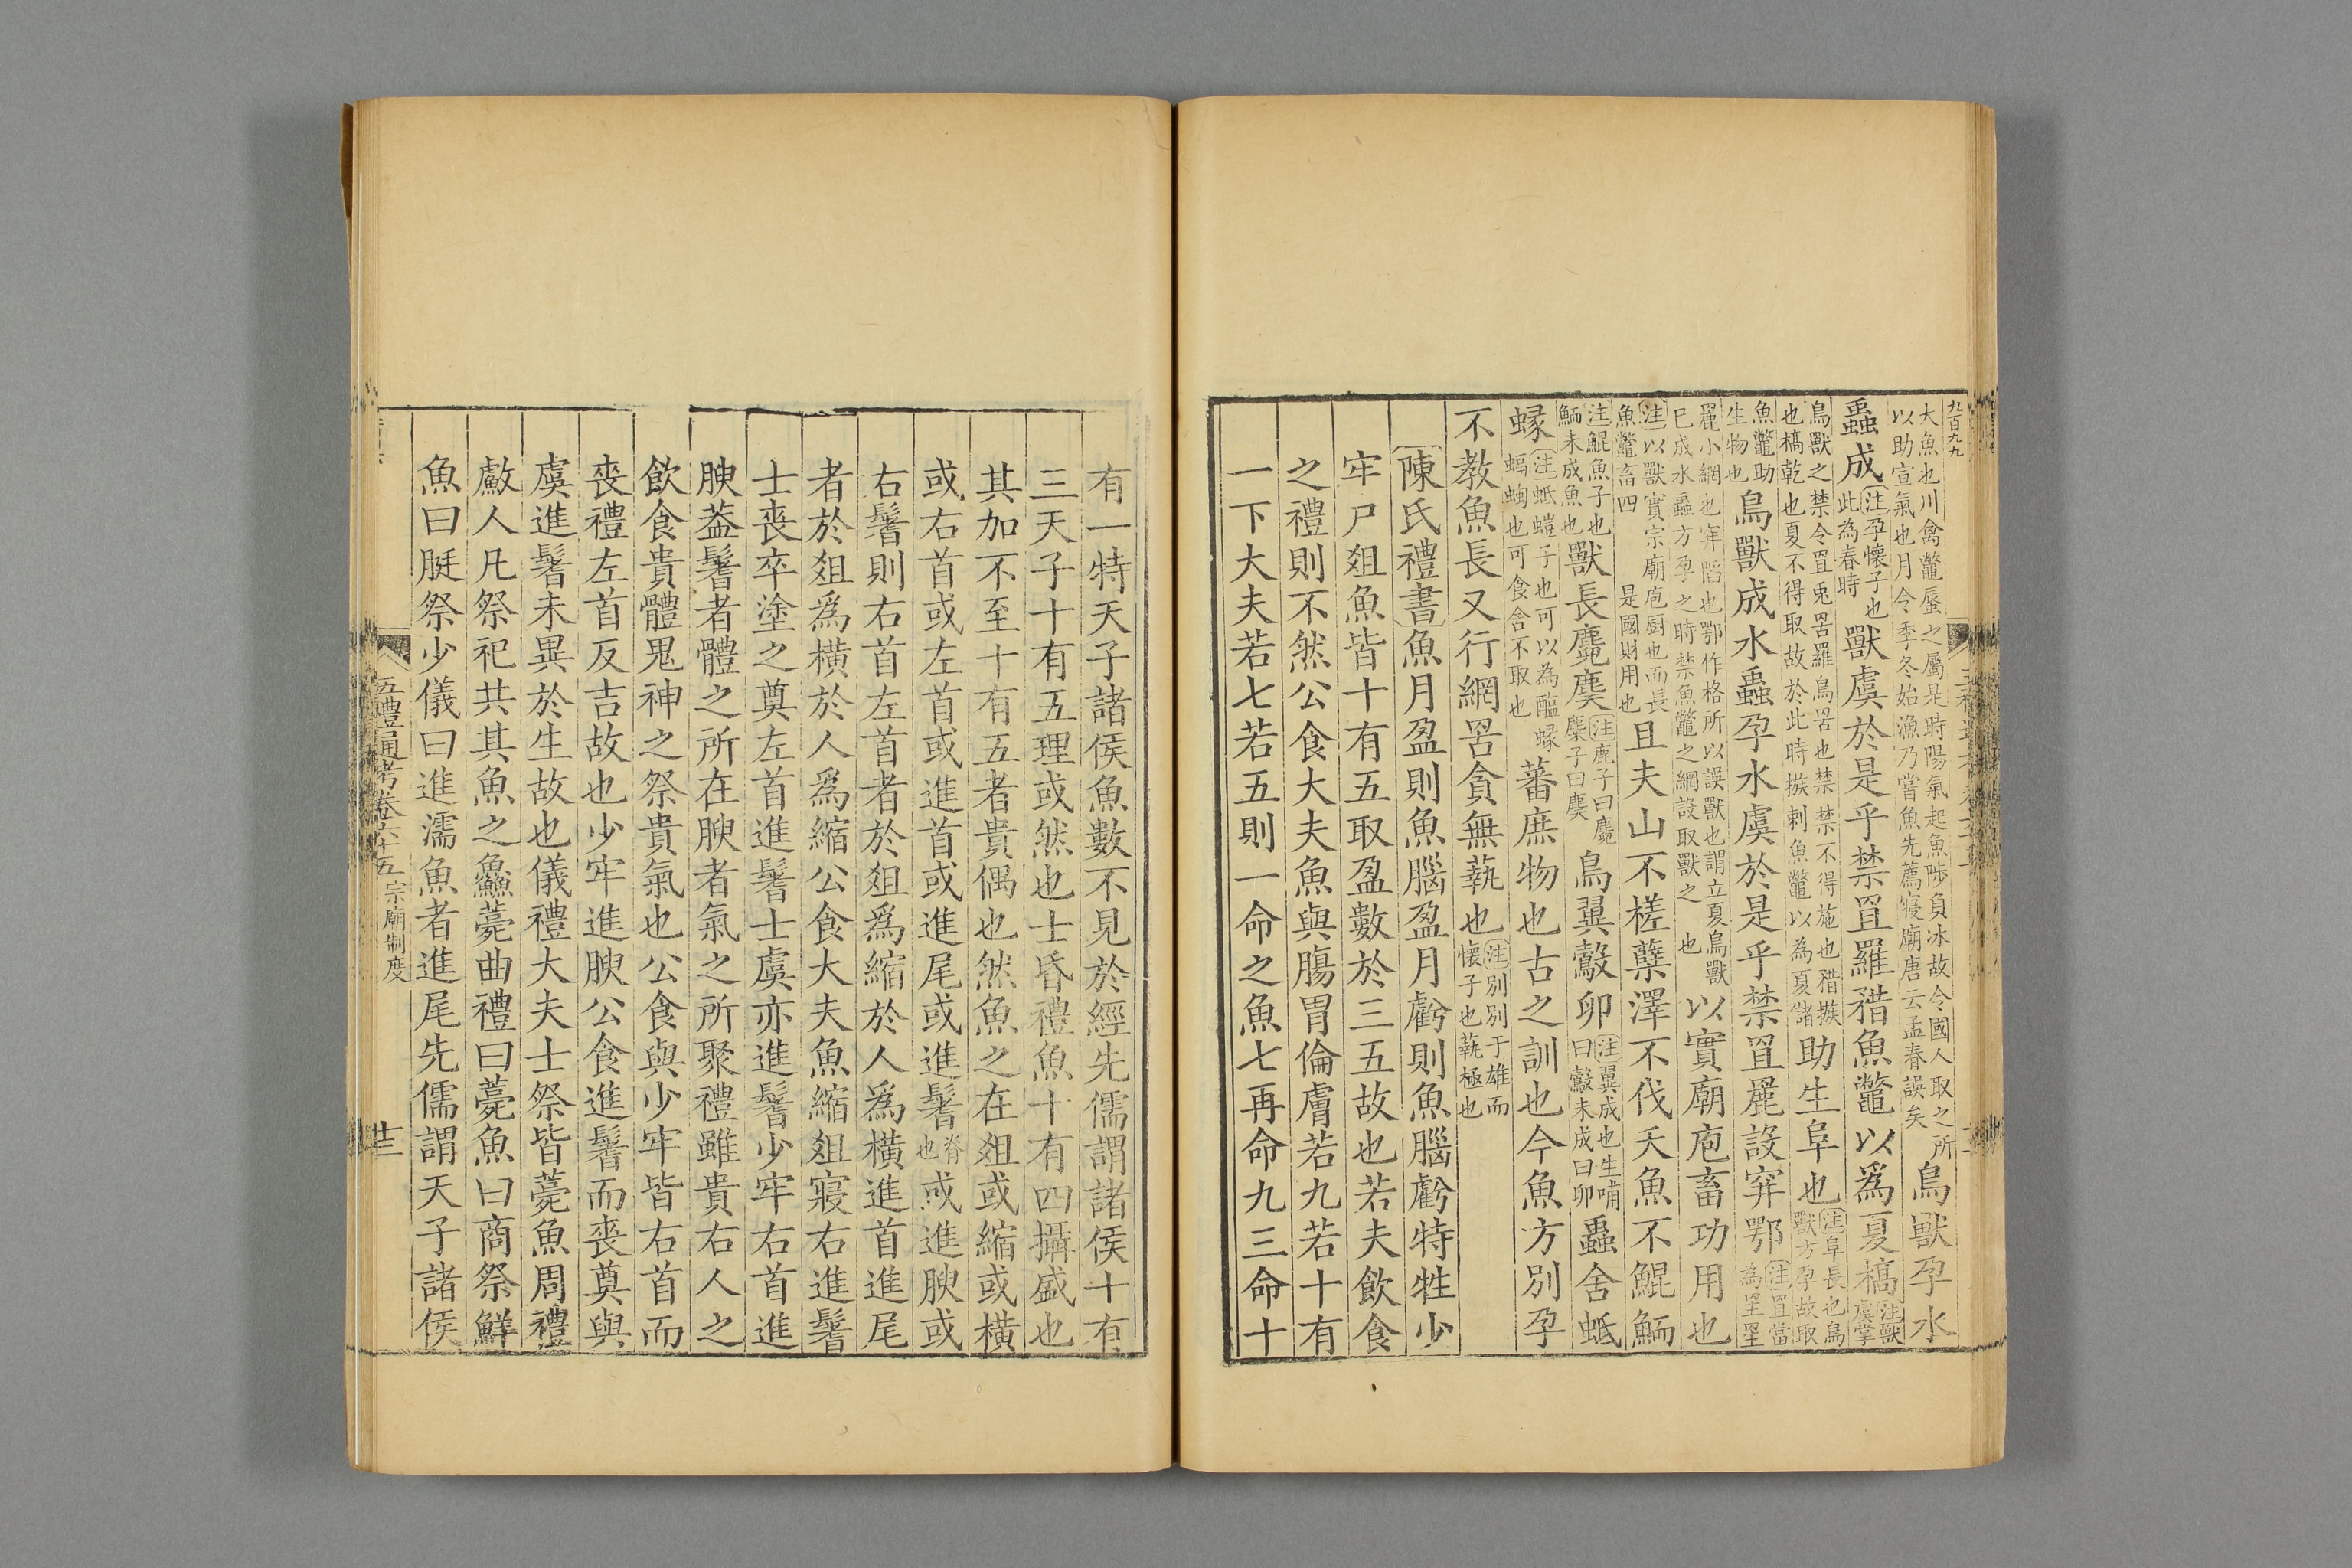 九百九九
大魚也川禽鼈蜃之屬是時陽氣起魚陟負冰故令國人取之所以助宣氣也月令季冬始漁乃嘗魚先薦寢廟唐云孟春誤矣鳥獸孕水
蟲成注孕懷子也此為春時獸虞於是乎禁罝羅矠魚鼈以爲夏槁注獸虞掌
鳥獸之禁令罝兎罟羅鳥罟也禁禁不得施也矠㨖也槁乾也夏不得取故於此時㨖刺魚鼈以為夏儲助生阜也注阜長也鳥獸方孕故取
魚鼈助生物也鳥獸成水蟲孕水虞於是乎禁罝䍡設穽鄂注罝當為罜罜
䍡小網也穽䧟也鄂作格所以誤獸也謂立夏鳥獸已成水蟲方孕之時禁魚鼈之網設取獸之也以實廟庖畜功用也
注以獸實宗廟庖厨也而長魚鼈畜四是國財用也且夫山不槎蘖澤不伐夭魚不鯤鮞
注鯤魚子也鮞未成魚也獸長麑麌注鹿子曰麑麋子曰麌鳥翼鷇卵注翼成也生哺曰鷇未成曰卵蟲舍蚳
蝝注蚳螘子也可以為醢蝝蝠蜪也可食舍不取也蕃庶物也古之訓也今魚方別孕
不教魚長又行網罟貪無蓺也注別別于雄而懷子也蓺極也
陳氏禮書魚月盈則魚腦盈月虧則魚腦虧特牲少
牢尸俎魚皆十有五取盈數於三五故也若夫飲食
之禮則不然公食大夫魚與腸胃倫膚若九若十有
一下大夫若七若五則一命之魚七再命九三命十
有一特天子諸侯魚數不見於經先儒謂諸侯十有
三天子十有五理或然也士昏禮魚十有四攝盛也
其加不至十有五者貴偶也然魚之在俎或縮或橫
或右首或左首或進首或進尾或進鬐脊也或進腴或
右鬐則右首左首者於俎爲縮於人爲橫進首進尾
者於俎爲橫於人爲縮公食大夫魚縮俎寢右進鬐
士喪卒塗之奠左首進鬐士虞亦進鬐少牢右首進
腴葢鬐者體之所在腴者氣之所聚禮雖貴右人之
飲食貴體鬼神之祭貴氣也公食與少牢皆右首而
喪禮左首反吉故也少牢進腴公食進鬐而喪奠與
虞進鬐未異於生故也儀禮大夫士祭皆薧魚周禮
䱷人凡祭祀共其魚之鱻薧曲禮曰薧魚曰商祭鮮
魚曰脡祭少儀曰進濡魚者進尾先儒謂天子諸侯
五禮通考卷六十五 宗廟制度 廿三